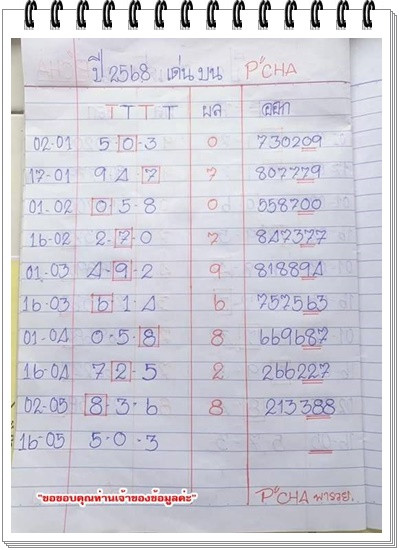 ปี 2568 เด่น บน P"CHA
T T T T ผล ออก
02-01 5 0 - 3 0 730209
17-01 9 - 4 - 7 7 807779
01-02 0 5 - 8 0 558700
16-02 2 - 7 - 0 7 847377
01-03 4 - 9 - 2 9 818894
16-03 6 1 - 4 6 757563
01-04 0 - 5 - 8 8 669687
16-04 7 2 - 5 2 266227
02-05 8 - 3 - 6 8 213388
16-05 5 - 0 - 3
"ขอขอบคุณท่านเจ้าของข้อมูลค่ะ" P"CHA พารวย.